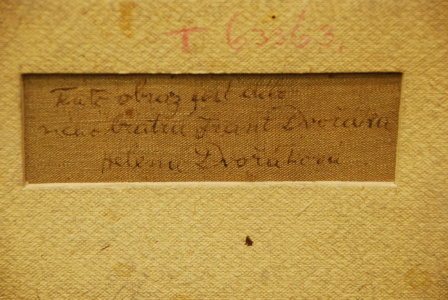 T 63363.
Tento obraz jest dílo
mého bratra Frant Dvořáka
Helena Dvořáková